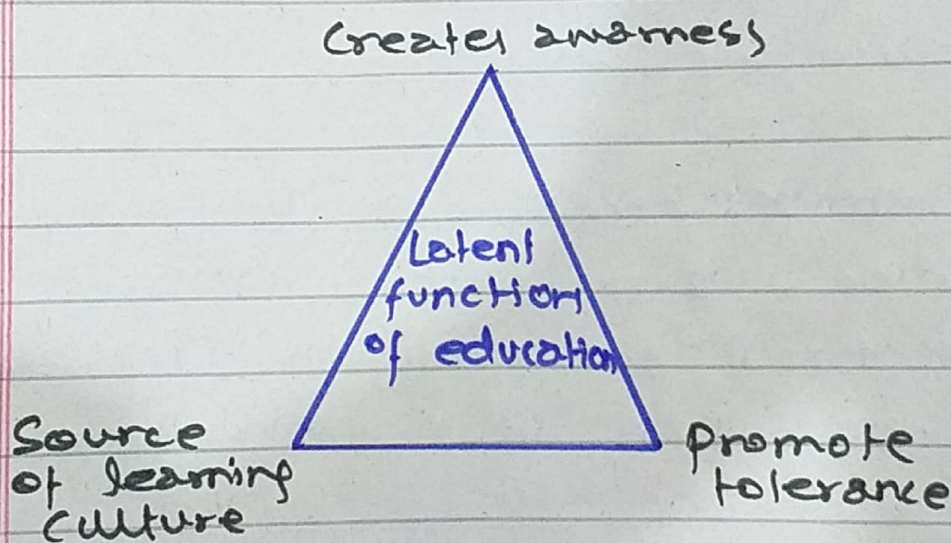 Creates awarness
Latent
functions
of education
Source
of learning
culture
Promote
tolerance